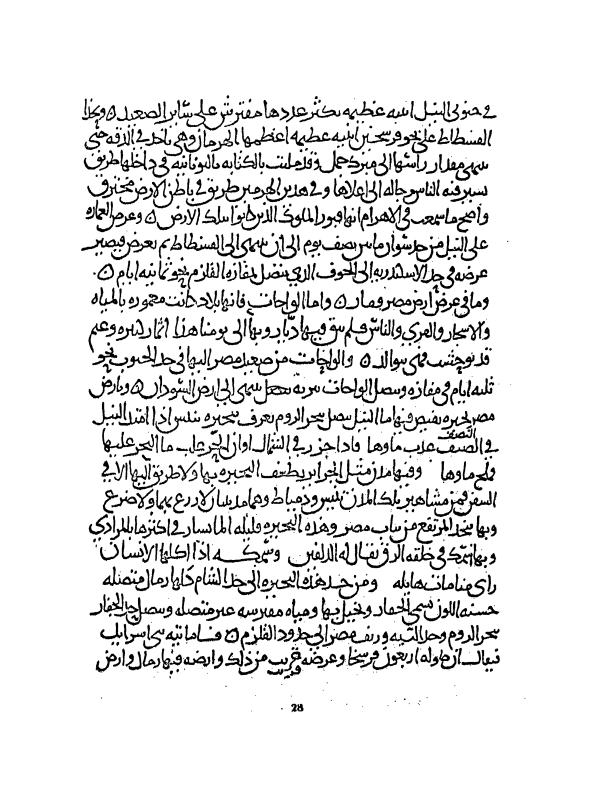 في جنوبي النيل ابنيه عظيمه يكثر عددها مفترش على سائر الصعيد ٥ وبحذا
الفسطاط على نحو فرسخين ابنيه عظيمه اعظمها الهرمان وهي تاخذ في الدقه حتى
ينتهي مقدار راسها الى مبرك جمل وقد ملئت بالكتابه باليونانيه في داخلها طريق
يسير فيه الناس رجاله الى اعلاها وفي هذين الهرمين طريق في باطن الارض مخترق
واصح ما سمعت في الاهرام انها قبور الملوك الذين كانوا بتلك الارض ٥ وعرض العماره
على النيل من حد اسوان ما بين نصف يوم الى ان ينتهي الى الفسطاط ثم يعرض فيصير
عرضه في حد الاسكندريه الى الحوف الذي يتصل بمفازه القلزم نحو ثمانيه ايام ٥
وما في عرض ارض مصر قفار ٥ واما الواحات فانها بلاد كانت معموره بالمياه
والاشجار والقرى والناس فلم يبق فيها ديار وبها الى يومنا هذا اثمار كثيره وغنم
قد توحشت فهي تتوالد ٥ والواحات من صعيد مصر اليها في حد الجنوب نحو
ثلثه ايام في مفازه وتتصل الواحات ببريه تتصل الى ارض السودان ٥ وبارض
مصر بحيره يفيض فيها ما النيل تتصل ببحر الروم تعرف ببحيره تنيس اذا امتد النيل
في الصيف عذب ماوها فاذا جزر في الشتا الى اوان الحر غلب ما البحر عليها
فملح ماوها وفيها مدن مثل الجزاير تطيف البحيره بها ولا طريق اليها الا في
السفن فمن مشاهير تلك المدن تنيس ودمياط وهما مدينتان لا زرع بهما ولا ضرع
وبها يتخذ المرتفع من ثياب مصر وهذه البحيره قليله الما يسار في اكثرها بالمرادي
وبها سمك في خلقه الزق يقال له الدلفين وسمكه اذا اكلها الانسان
راى منامات هايله ومن حد هذه البحيره الى حد الشام كلها رمال متصله
حسنه اللون تسمى الجفار وبخيل بها ومياه مفترشه غير متصله ويتصل حد الجفار
ببحر الروم وحد التيه وريف مصر الى حدود القلزم ٥ فاما تيه بني اسرايل
فيقال ان طوله اربعون فرسخا وعرضه قريب من ذلك وارضه فيها رمال وارض
28